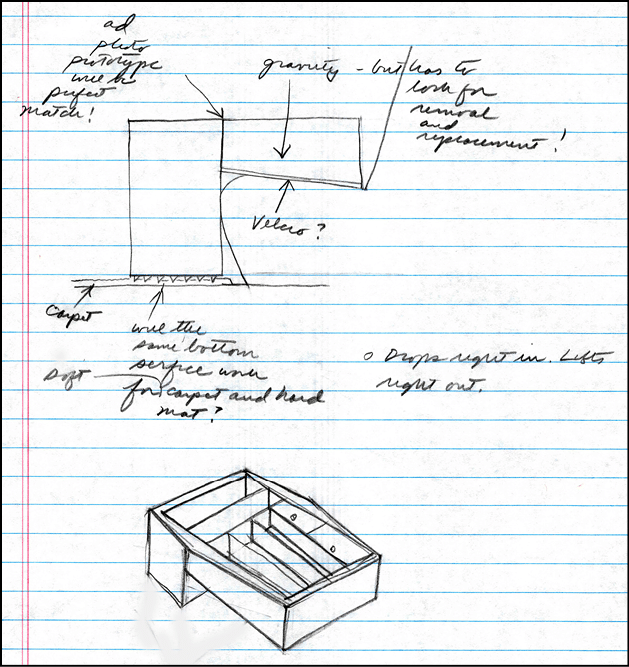 ad
photo
prototype
will b
perfect
match!
gravity - but has to
lock for
removal
and
replacement!
Velcro?
Carpet
will the
same bottom
serfice work
for carpet and hard
mat?
Soft
o Drops right in. Lifts
right out.